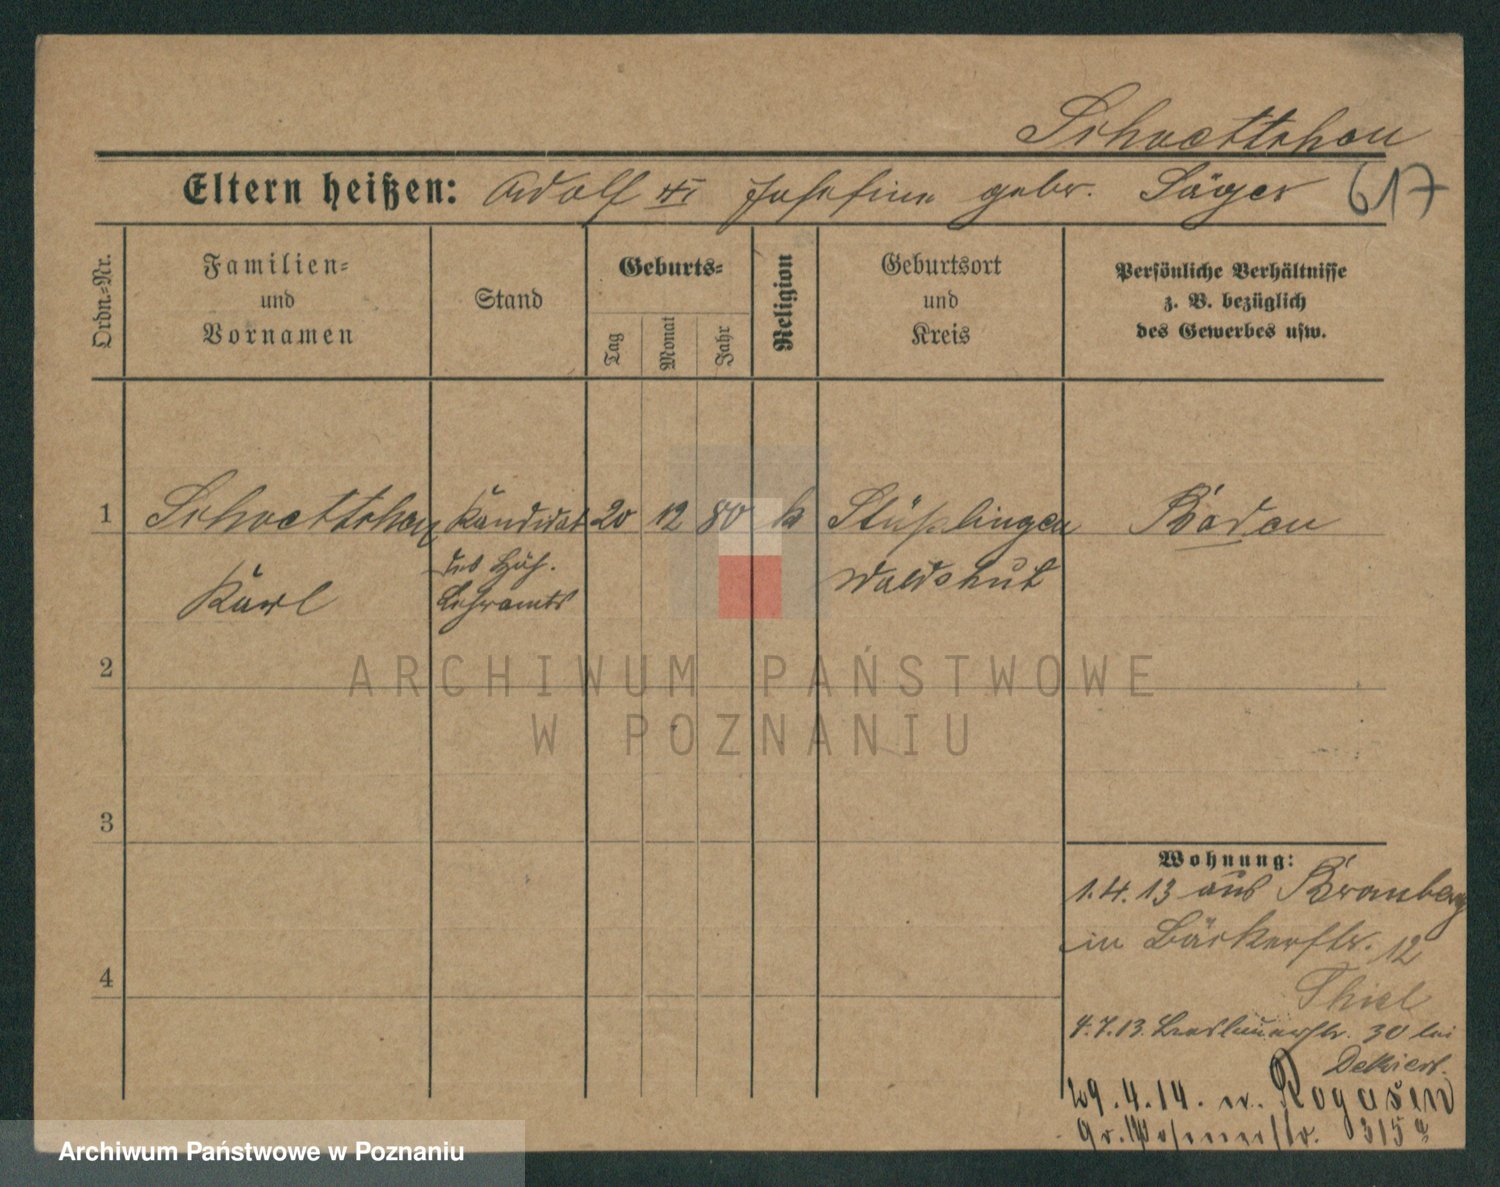 Schoettchen
Eltern heißen: Adolf Josefine gebr. Säger 617
Ordn.-Nr.
Familien-
und
Vornamen
Stand
Geburts-
Tag
Monat
Jahr
Religion
Geburtsort
und
Kreis
Persönliche Verhältnisse
z. B. bezüglich
des Gewerbes usw.
1 Kandidat 20 12 80 k Baden
des Höh. Waldshut
Karl Lehramts
2
ARCHIWUM PAŃSTWOWE
W POZNANIU
3
Wohnung:
1.4.13 aus
in Bäckerstr. 12
4
Thiel
4.7.13. 30 bei
29.4.14. n. Rogasen
315
Archiwum Państwowe w Poznaniu